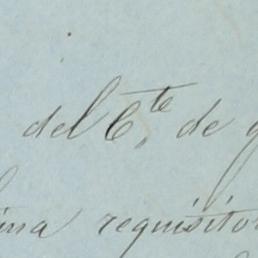 del C,te de
requisitor